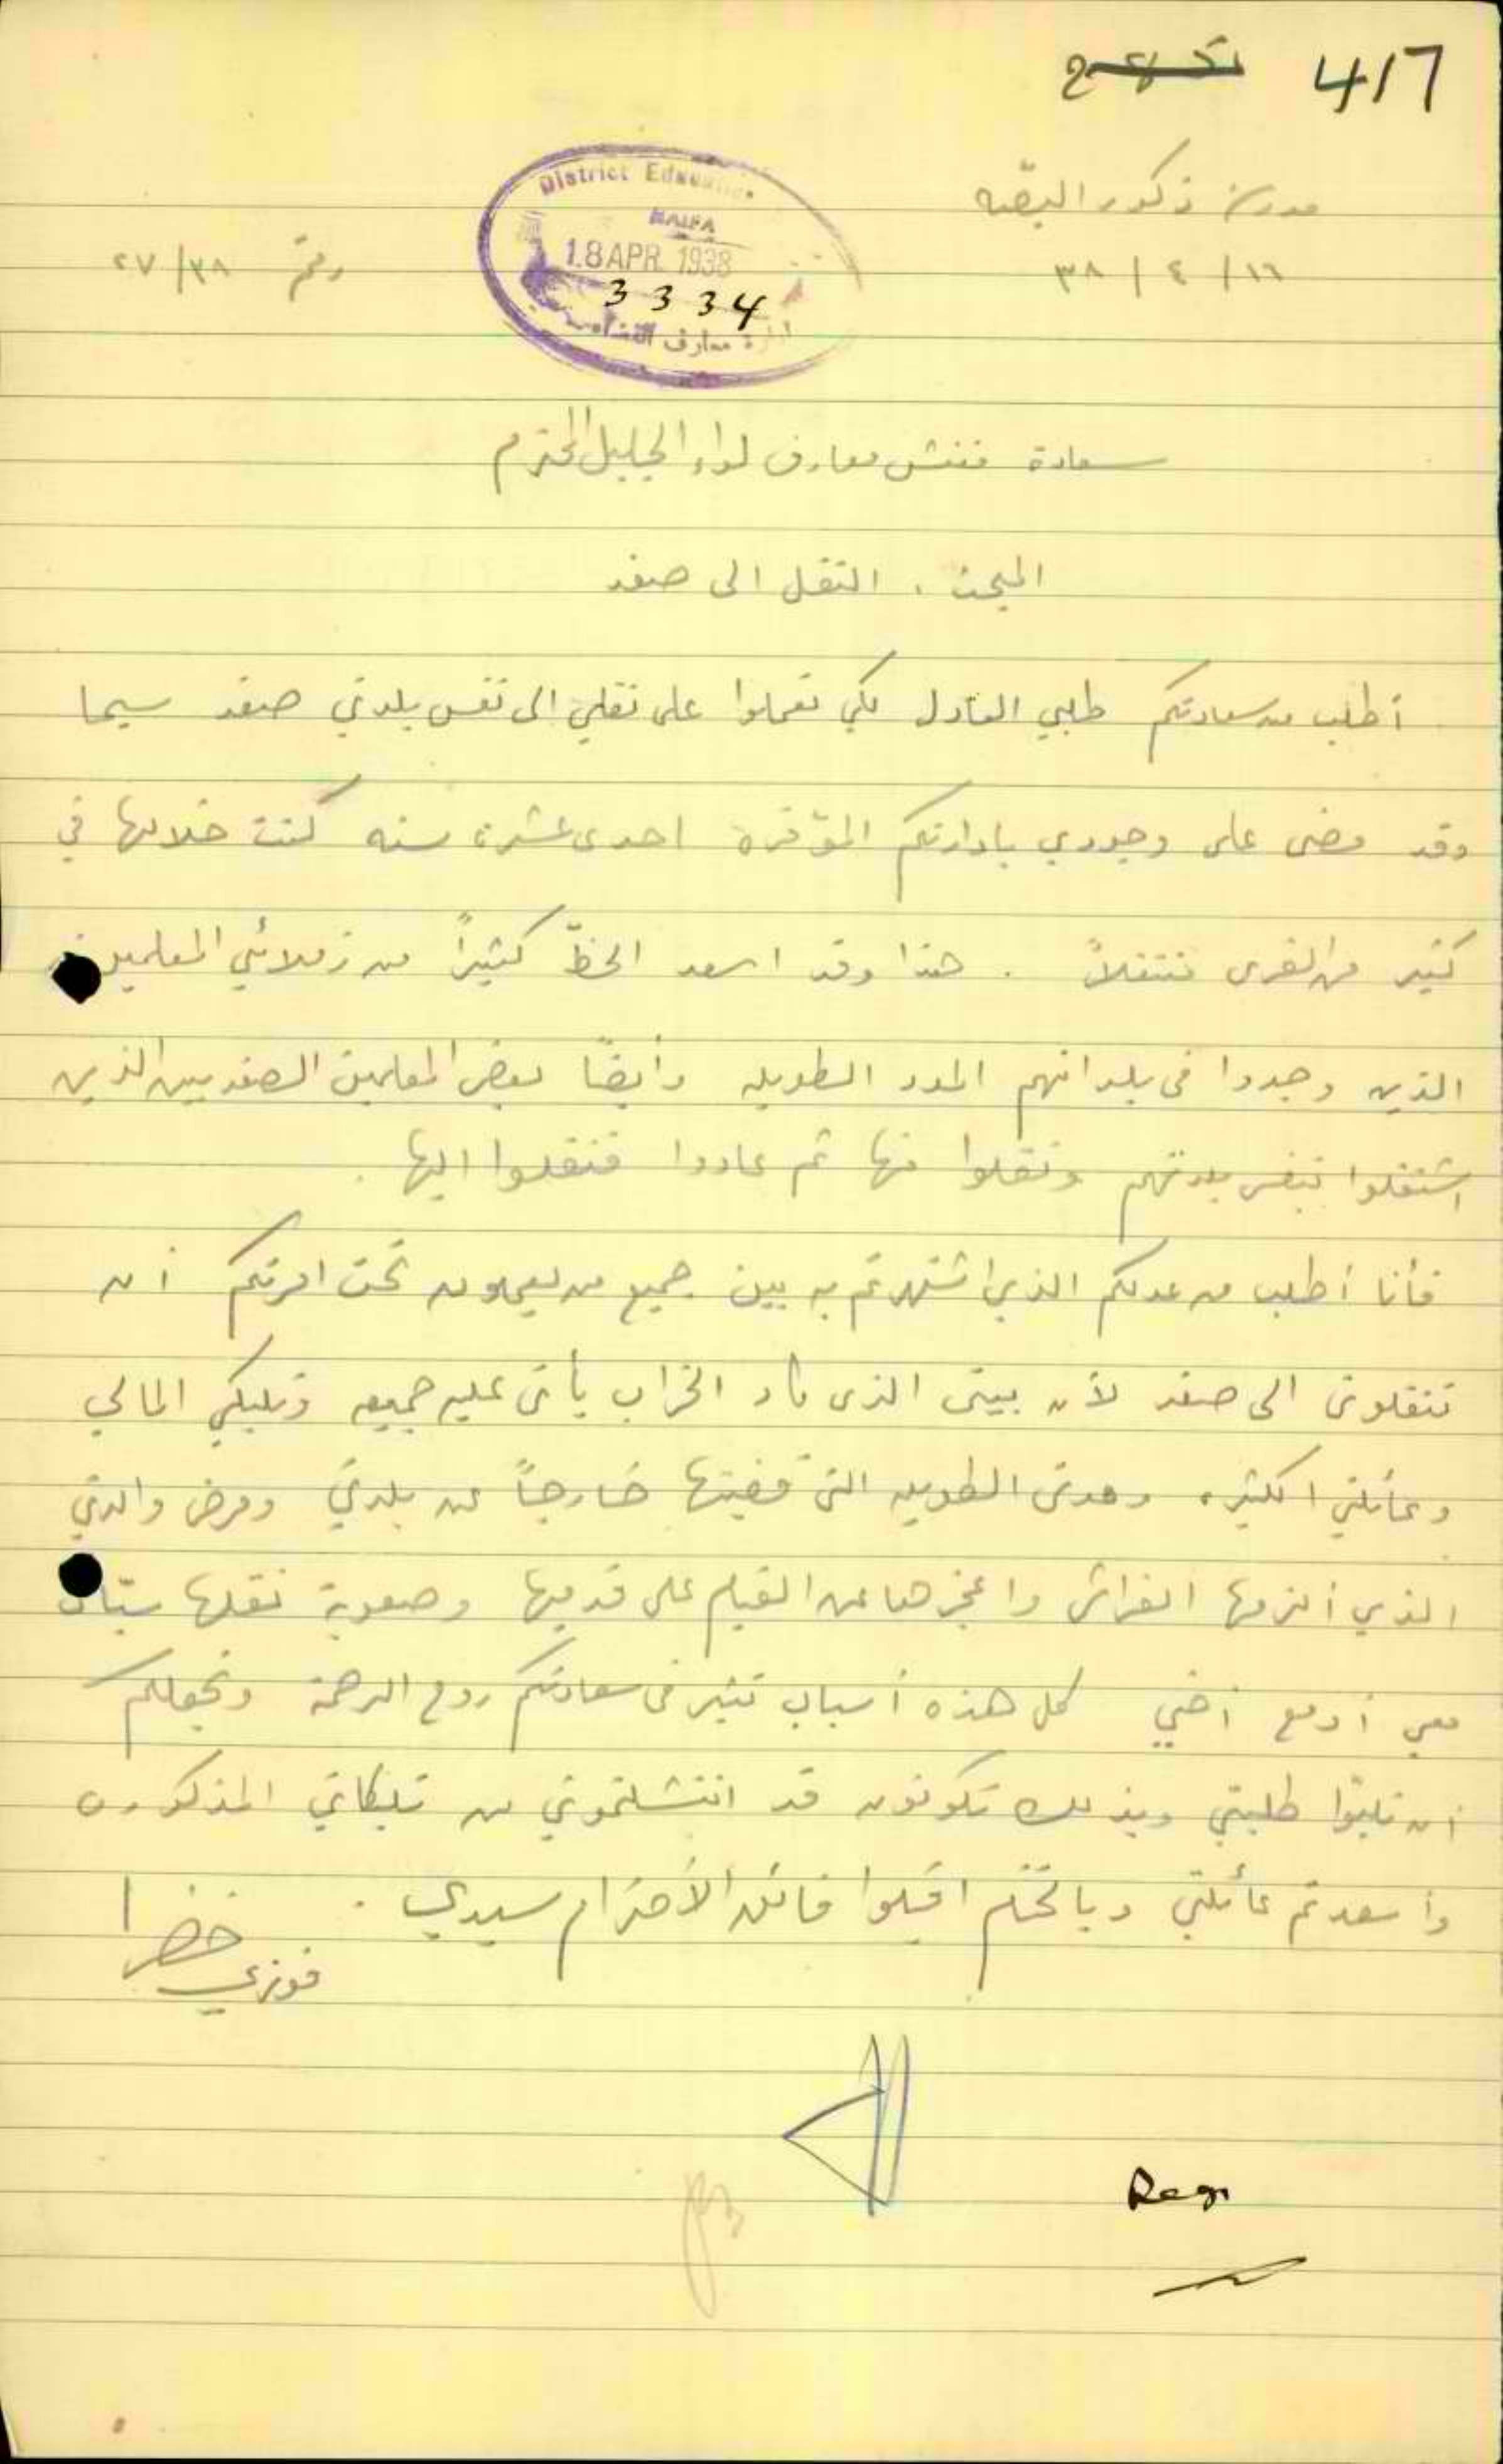 417
مدرسة ذكور البصّه
District Education
HAIFA
18 APR. 1938
3334
ادارة معارف
١٦ / ٤ / ٣٨
رقم ٢٧/٣٨
سعادة مفتش معارف لواء الجليل المحترم
المبحث . النقل الى صفد
أطلب من سعادتكم طلبي العادل لكي تعملوا على نقلي الى نفس بلدتي صفد سيما
وقد مضى على وجودي بادارتكم الموقره احدى عشرة سنه كنت خلالها في
كثير من القرى متنقلاً . هذا وقد اسعد الحظّ كثيراً من زملائي المعلمين
الذين وجدوا في بلدانهم المدد الطويله وأيضاً بعض المعلمين الصفديين الذين
اشتغلوا بنفس بلدتهم ونقلوا منها ثم عادوا فنقلوا اليها .
فأنا أطلب من عدلكم الذي اشتهرتم به بين جميع من يعملون تحت امرتكم أن
تنقلوني الى صفد لأن بيتي الذي كاد الخراب يأتي عليه جميعه وتلبكي المالي
وعائلتي الكثيره ومدتي الطويله التي قضيتها خارجاً عن بلدتي ومرض والدتي
الذي ألزمها الفراش واعجزها عن القيام على قدميها وصعوبة نقلها
معي أو مع أخي كل هذه أسباب تثير في سعادتكم روح الرحمة وتجعلكم
أن تلبّوا طلبتي وبذلك تكونون قد انتشلتموني من تلبكاتي المذكوره
وأسعدتم عائلتي وبالختام اقبلوا فائق الأحترام سيدي .
فوزي خضرا
Regr